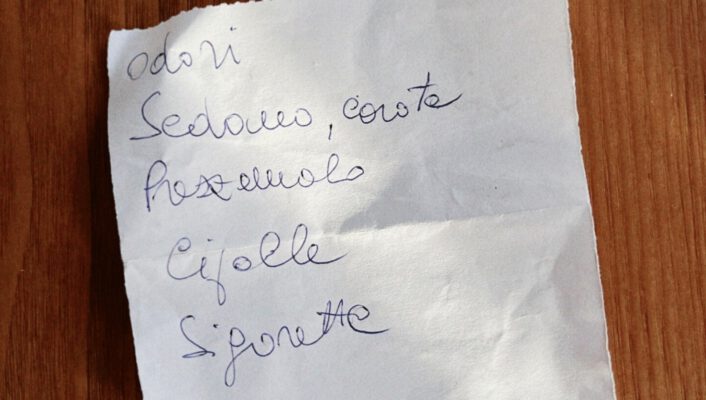 odori
Sedano, carota
Prezzemolo
Cipolle
Sigarette